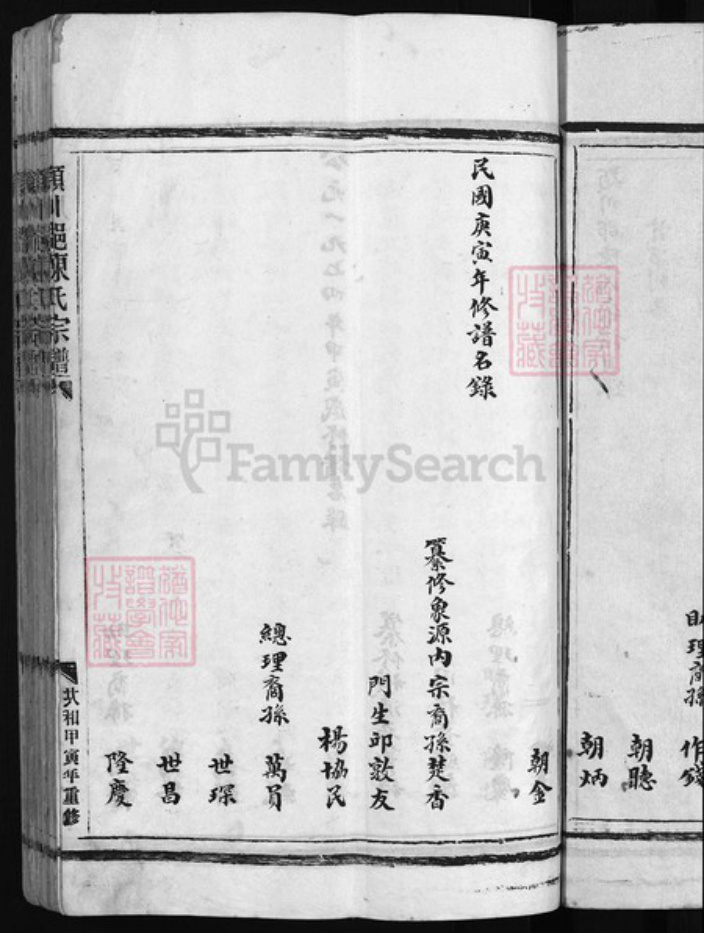 助理裔孫 作錢
朝聽
朝炳
朝金
民國庚寅年修譜名錄
纂修象源內宗裔孫楚香
門生邱敦友
楊協民
總理裔孫 萬員
世琛
世昌
隆慶
陳氏宗譜
共和甲寅年重修
FamilySearch